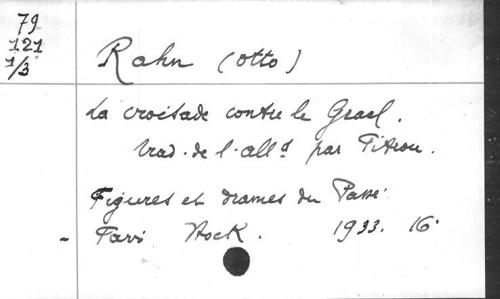 79
121
1/3
Rahn (Otto)
La croisade contre le Graal.
trad. de l'all^d par Pitrou.
Figures et drames du Passé.
- Paris Stock. 1933. 16°